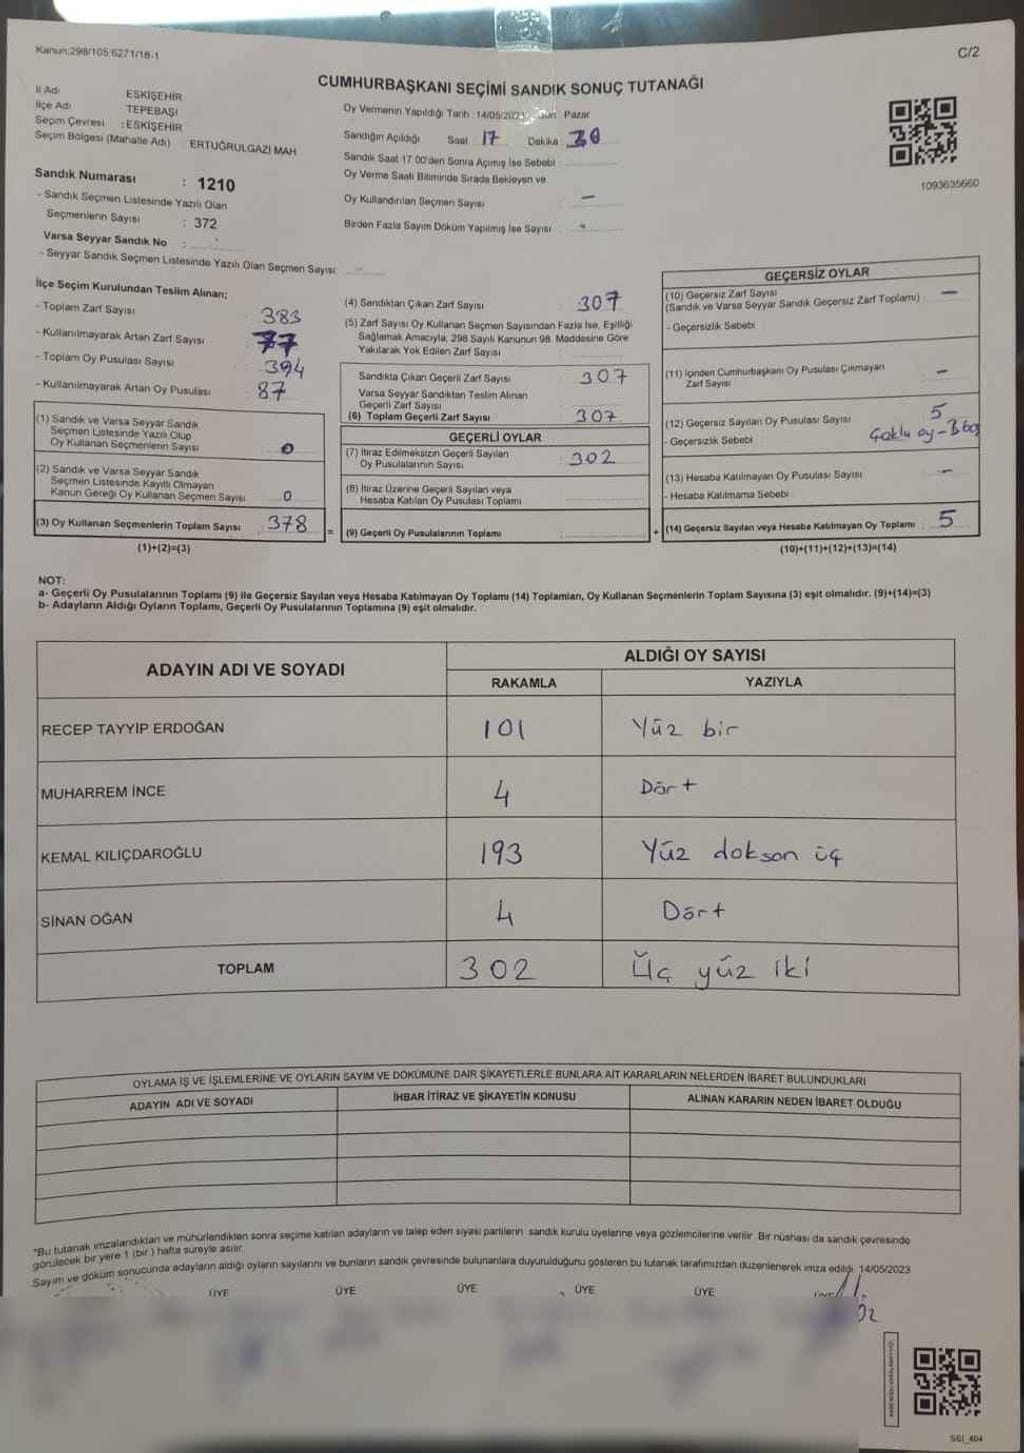 Kanun:298/105,6271/18-1
C/2
CUMHURBAŞKANI SEÇİMİ SANDIK SONUÇ TUTANAĞI
İl Adı ESKİŞEHİR
İlçe Adı TEPEBAŞI
Seçim Çevresi :ESKİŞEHİR
Seçim Bölgesi (Mahalle Adı) ERTUĞRULGAZİ MAH
Sandık Numarası : 1210
- Sandık Seçmen Listesinde Yazılı Olan
Seçmenlerin Sayısı : 372
Varsa Seyyar Sandık No :
- Seyyar Sandık Seçmen Listesinde Yazılı Olan Seçmen Sayısı
Oy Vermenin Yapıldığı Tarih : 14/05/2023 Gün Pazar
Sandığın Açıldığı Saat 17 Dakika 30
Sandık Saat 17.00'den Sonra Açımış İse Sebebi
Oy Verme Saati Bitiminde Sırada Bekleyen ve
Oy Kullandırılan Seçmen Sayısı —
Birden Fazla Sayım Döküm Yapılmış İse Sayısı -
1093635660
İlçe Seçim Kurulundan Teslim Alınan;
- Toplam Zarf Sayısı 383
- Kullanılmayarak Artan Zarf Sayısı 77
- Toplam Oy Pusulası Sayısı 394
- Kullanılmayarak Artan Oy Pusulası 87
(1) Sandık ve Varsa Seyyar Sandık
Seçmen Listesinde Yazılı Olup
Oy Kullanan Seçmenlerin Sayısı 0
(2) Sandık ve Varsa Seyyar Sandık
Seçmen Listesinde Kayıtlı Olmayan
Kanun Gereği Oy Kullanan Seçmen Sayısı 0
(3) Oy Kullanan Seçmenlerin Toplam Sayısı 378 =
(1)+(2)=(3)
(4) Sandıktan Çıkan Zarf Sayısı 307
(5) Zarf Sayısı Oy Kullanan Seçmen Sayısından Fazla İse, Eşitliği
Sağlamak Amacıyla, 298 Sayılı Kanunun 98. Maddesine Göre
Yakılarak Yok Edilen Zarf Sayısı
Sandıkta Çıkan Geçerli Zarf Sayısı 307
Varsa Seyyar Sandıktan Teslim Alınan
Geçerli Zarf Sayısı
(6) Toplam Geçerli Zarf Sayısı 307
GEÇERLİ OYLAR
(7) İtiraz Edilmeksizin Geçerli Sayılan
Oy Pusulalarının Sayısı 302
(8) İtiraz Üzerine Geçerli Sayılan veya
Hesaba Katılan Oy Pusulası Toplamı
(9) Geçerli Oy Pusulalarının Toplamı +
GEÇERSİZ OYLAR
(10) Geçersiz Zarf Sayısı —
(Sandık ve Varsa Seyyar Sandık Geçersiz Zarf Toplamı)
- Geçersizlik Sebebi
(11) İçinden Cumhurbaşkanı Oy Pusulası Çıkmayan
Zarf Sayısı -
(12) Geçersiz Sayılan Oy Pusulası Sayısı 5
- Geçersizlik Sebebi Çoklu oy-3 boş
(13) Hesaba Katılmayan Oy Pusulası Sayısı -
- Hesaba Katılmama Sebebi
(14) Geçersiz Sayılan veya Hesaba Katılmayan Oy Toplamı 5
(10)+(11)+(12)+(13)=(14)
NOT:
a- Geçerli Oy Pusulalarının Toplamı (9) ile Geçersiz Sayılan veya Hesaba Katılmayan Oy Toplamı (14) Toplamları, Oy Kullanan Seçmenlerin Toplam Sayısına (3) eşit olmalıdır. (9)+(14)=(3)
b- Adayların Aldığı Oyların Toplamı, Geçerli Oy Pusulalarının Toplamına (9) eşit olmalıdır.
ADAYIN ADI VE SOYADI
ALDIĞI OY SAYISI
RAKAMLA YAZIYLA
RECEP TAYYİP ERDOĞAN 101 Yüz bir
MUHARREM İNCE 4 Dört
KEMAL KILIÇDAROĞLU 193 Yüz dokson üç
SİNAN OĞAN 4 Dört
TOPLAM 302 Üç yüz iki
OYLAMA İŞ VE İŞLEMLERİNE VE OYLARIN SAYIM VE DÖKÜMÜNE DAİR ŞİKAYETLERLE BUNLARA AİT KARARLARIN NELERDEN İBARET BULUNDUKLARI
ADAYIN ADI VE SOYADI İHBAR İTİRAZ VE ŞİKAYETİN KONUSU ALINAN KARARIN NEDEN İBARET OLDUĞU
*Bu tutanak imzalandıktan ve mühürlendikten sonra seçime katılan adayların ve talep eden siyasi partilerin sandık kurulu üyelerine veya gözlemcilerine verilir. Bir nüshası da sandık çevresinde
görülecek bir yere 1 (bir) hafta süreyle asılır.
Sayım ve döküm sonucunda adayların aldığı oyların sayılarını ve bunların sandık çevresinde bulunanlara duyurulduğunu gösteren bu tutanak tarafımızdan düzenlenerek imza edildi. 14/05/2023
ÜYE ÜYE ÜYE ÜYE ÜYE
SGI_404